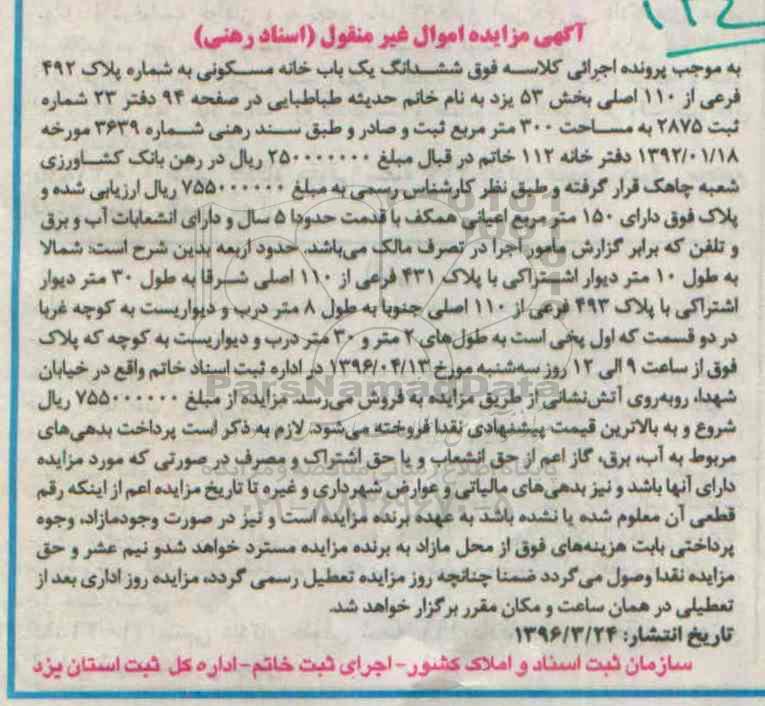 آگهی مزایده اموال غیر منقول (اسناد رهنی)
به موجب پرونده اجرائی کلاسه فوق ششدانگ یک باب خانه مسکونی به شماره پلاک ۴۹۲
فرعی از ۱۱۰ اصلی بخش ۵۳ یزد به نام خانم حدیثه طباطبایی در صفحه ۹۴ دفتر ۲۳ شماره
ثبت ۲۸۷۵ به مساحت ۳۰۰ متر مربع ثبت و صادر و طبق سند رهنی شماره ۳۶۳۹ مورخه
۱۳۹۲/۰۱/۱۸ دفتر خانه ۱۱۲ خاتم در قبال مبلغ ۲۵۰۰۰۰۰۰۰ ریال در رهن بانک کشاورزی
شعبه چاهک قرار گرفته و طبق نظر کارشناس رسمی به مبلغ ۷۵۵۰۰۰۰۰۰ ریال ارزیابی شده و
پلاک فوق دارای ۱۵۰ متر مربع اعیانی همکف با قدمت حدودا ۵ سال و دارای انشعابات آب و برق
و تلفن که برابر گزارش مأمور اجرا در تصرف مالک می‌باشد. حدود اربعه بدین شرح است: شمالا
به طول ۱۰ متر دیوار اشتراکی با پلاک ۴۳۱ فرعی از ۱۱۰ اصلی شرقا به طول ۳۰ متر دیوار
اشتراکی با پلاک ۴۹۳ فرعی از ۱۱۰ اصلی جنوبا به طول ۸ متر درب و دیواریست به کوچه غربا
در دو قسمت که اول پخی است به طول‌های ۲ متر و ۳۰ متر درب و دیواریست به کوچه که پلاک
فوق از ساعت ۹ الی ۱۲ روز سه‌شنبه مورخ ۱۳۹۶/۰۴/۱۳ در اداره ثبت اسناد خاتم واقع در خیابان
شهدا، روبه‌روی آتش‌نشانی از طریق مزایده به فروش می‌رسد. مزایده از مبلغ ۷۵۵۰۰۰۰۰۰ ریال
شروع و به بالاترین قیمت پیشنهادی نقدا فروخته می‌شود. لازم به ذکر است پرداخت بدهی‌های
مربوط به آب، برق، گاز اعم از حق انشعاب و یا حق اشتراک و مصرف در صورتی که مورد مزایده
دارای آنها باشد و نیز بدهی‌های مالیاتی و عوارض شهرداری و غیره تا تاریخ مزایده اعم از اینکه رقم
قطعی آن معلوم شده یا نشده باشد به عهده برنده مزایده است و نیز در صورت وجودمازاد، وجوه
پرداختی بابت هزینه‌های فوق از محل مازاد به برنده مزایده مسترد خواهد شدو نیم عشر و حق
مزایده نقدا وصول می‌گردد ضمنا چنانچه روز مزایده تعطیل رسمی گردد، مزایده روز اداری بعد از
تعطیلی در همان ساعت و مکان مقرر برگزار خواهد شد.
تاریخ انتشار: ۱۳۹۶/۳/۲۴
سازمان ثبت اسناد و املاک کشور- اجرای ثبت خاتم- اداره کل ثبت استان یزد
ParsNamadData